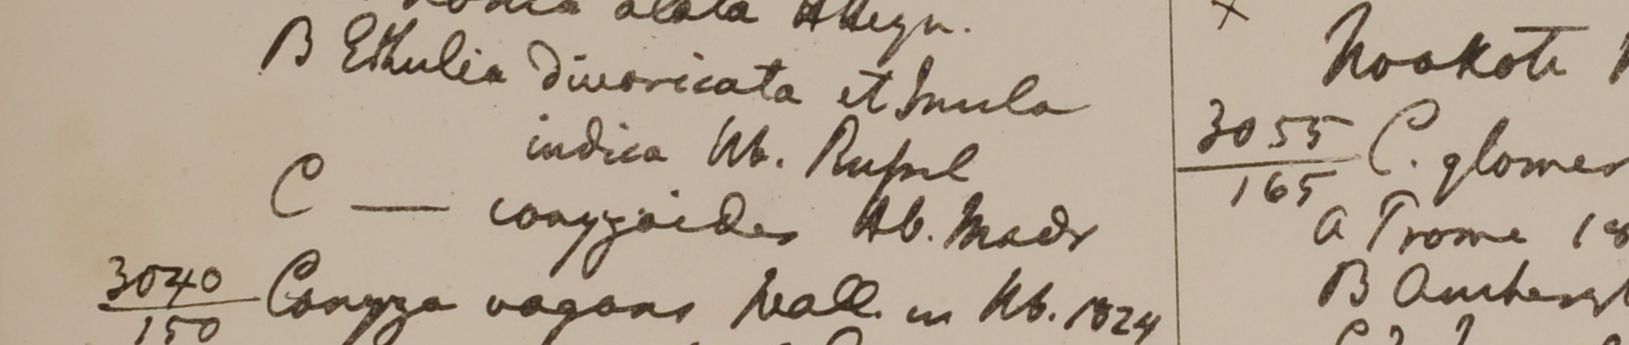 alata Heyn.
B Ethulia divaricata et Inula
indica Hb. Russel
C — conyzoides Hb. Madr
3040/150 Conyza vagans Wall. in Hb. 1824
×
Noakote
3055/165 C. glomer
a Prome 18
B Amherst